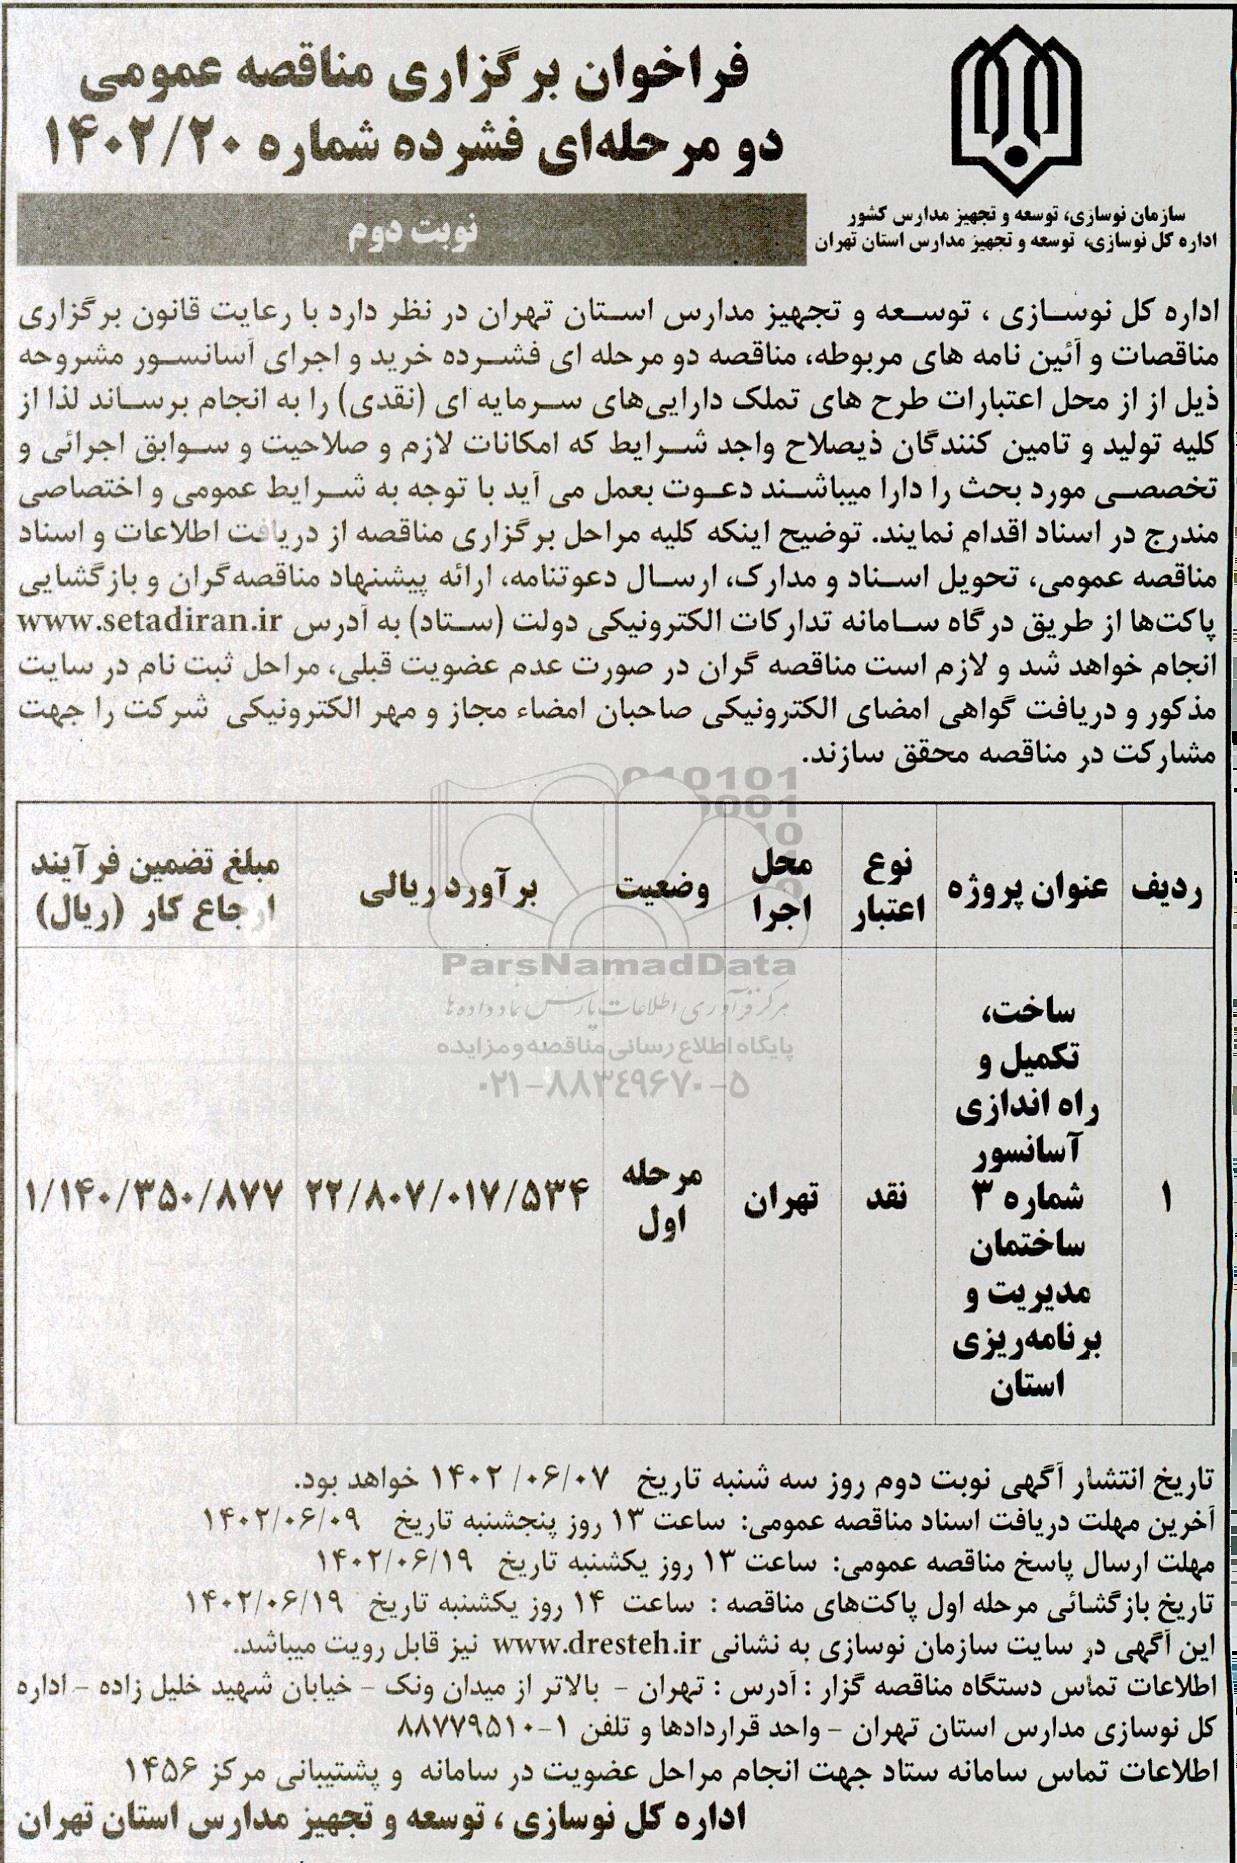 فراخوان برگزاری مناقصه عمومی
دو مرحله‌ای فشرده شماره ۱۴۰۲/۲۰
نوبت دوم
سازمان نوسازی، توسعه و تجهیز مدارس کشور
اداره کل نوسازی، توسعه و تجهیز مدارس استان تهران
اداره کل نوسازی ، توسعه و تجهیز مدارس استان تهران در نظر دارد با رعایت قانون برگزاری
مناقصات و آئین نامه های مربوطه، مناقصه دو مرحله ای فشرده خرید و اجرای آسانسور مشروحه
ذیل از از محل اعتبارات طرح های تملک دارایی‌های سرمایه ای (نقدی) را به انجام برساند لذا از
کلیه تولید و تامین کنندگان ذیصلاح واجد شرایط که امکانات لازم و صلاحیت و سوابق اجرائی و
تخصصی مورد بحث را دارا میباشند دعوت بعمل می آید با توجه به شرایط عمومی و اختصاصی
مندرج در اسناد اقدام نمایند. توضیح اینکه کلیه مراحل برگزاری مناقصه از دریافت اطلاعات و اسناد
مناقصه عمومی، تحویل اسناد و مدارک، ارسال دعوتنامه، ارائه پیشنهاد مناقصه‌گران و بازگشایی
پاکت‌ها از طریق درگاه سامانه تدارکات الکترونیکی دولت (ستاد) به آدرس www.setadiran.ir
انجام خواهد شد و لازم است مناقصه گران در صورت عدم عضویت قبلی، مراحل ثبت نام در سایت
مذکور و دریافت گواهی امضای الکترونیکی صاحبان امضاء مجاز و مهر الکترونیکی شرکت را جهت
مشارکت در مناقصه محقق سازند.
ردیف عنوان پروژه نوع اعتبار محل اجرا وضعیت برآورد ریالی مبلغ تضمین فرآیند ارجاع کار (ریال)
۱ ساخت، تکمیل و راه اندازی آسانسور شماره ۳ ساختمان مدیریت و برنامه‌ریزی استان نقد تهران مرحله اول ۲۲/۸۰۷/۰۱۷/۵۳۴ ۱/۱۴۰/۳۵۰/۸۷۷
ParsNamadData
مرکز فرآوری اطلاعات پارس نماد داده ها
پایگاه اطلاع رسانی مناقصه و مزایده
۰۲۱-۸۸۳۴۹۶۷۰-۵
تاریخ انتشار آگهی نوبت دوم روز سه شنبه تاریخ ۱۴۰۲/۰۶/۰۷ خواهد بود.
آخرین مهلت دریافت اسناد مناقصه عمومی: ساعت ۱۳ روز پنجشنبه تاریخ ۱۴۰۲/۰۶/۰۹
مهلت ارسال پاسخ مناقصه عمومی: ساعت ۱۳ روز یکشنبه تاریخ ۱۴۰۲/۰۶/۱۹
تاریخ بازگشائی مرحله اول پاکت‌های مناقصه : ساعت ۱۴ روز یکشنبه تاریخ ۱۴۰۲/۰۶/۱۹
این آگهی در سایت سازمان نوسازی به نشانی www.dresteh.ir نیز قابل رویت میباشد.
اطلاعات تماس دستگاه مناقصه گزار : آدرس : تهران - بالاتر از میدان ونک - خیابان شهید خلیل زاده - اداره
کل نوسازی مدارس استان تهران - واحد قراردادها و تلفن ۱-۸۸۷۷۹۵۱۰
اطلاعات تماس سامانه ستاد جهت انجام مراحل عضویت در سامانه و پشتیبانی مرکز ۱۴۵۶
اداره کل نوسازی ، توسعه و تجهیز مدارس استان تهران